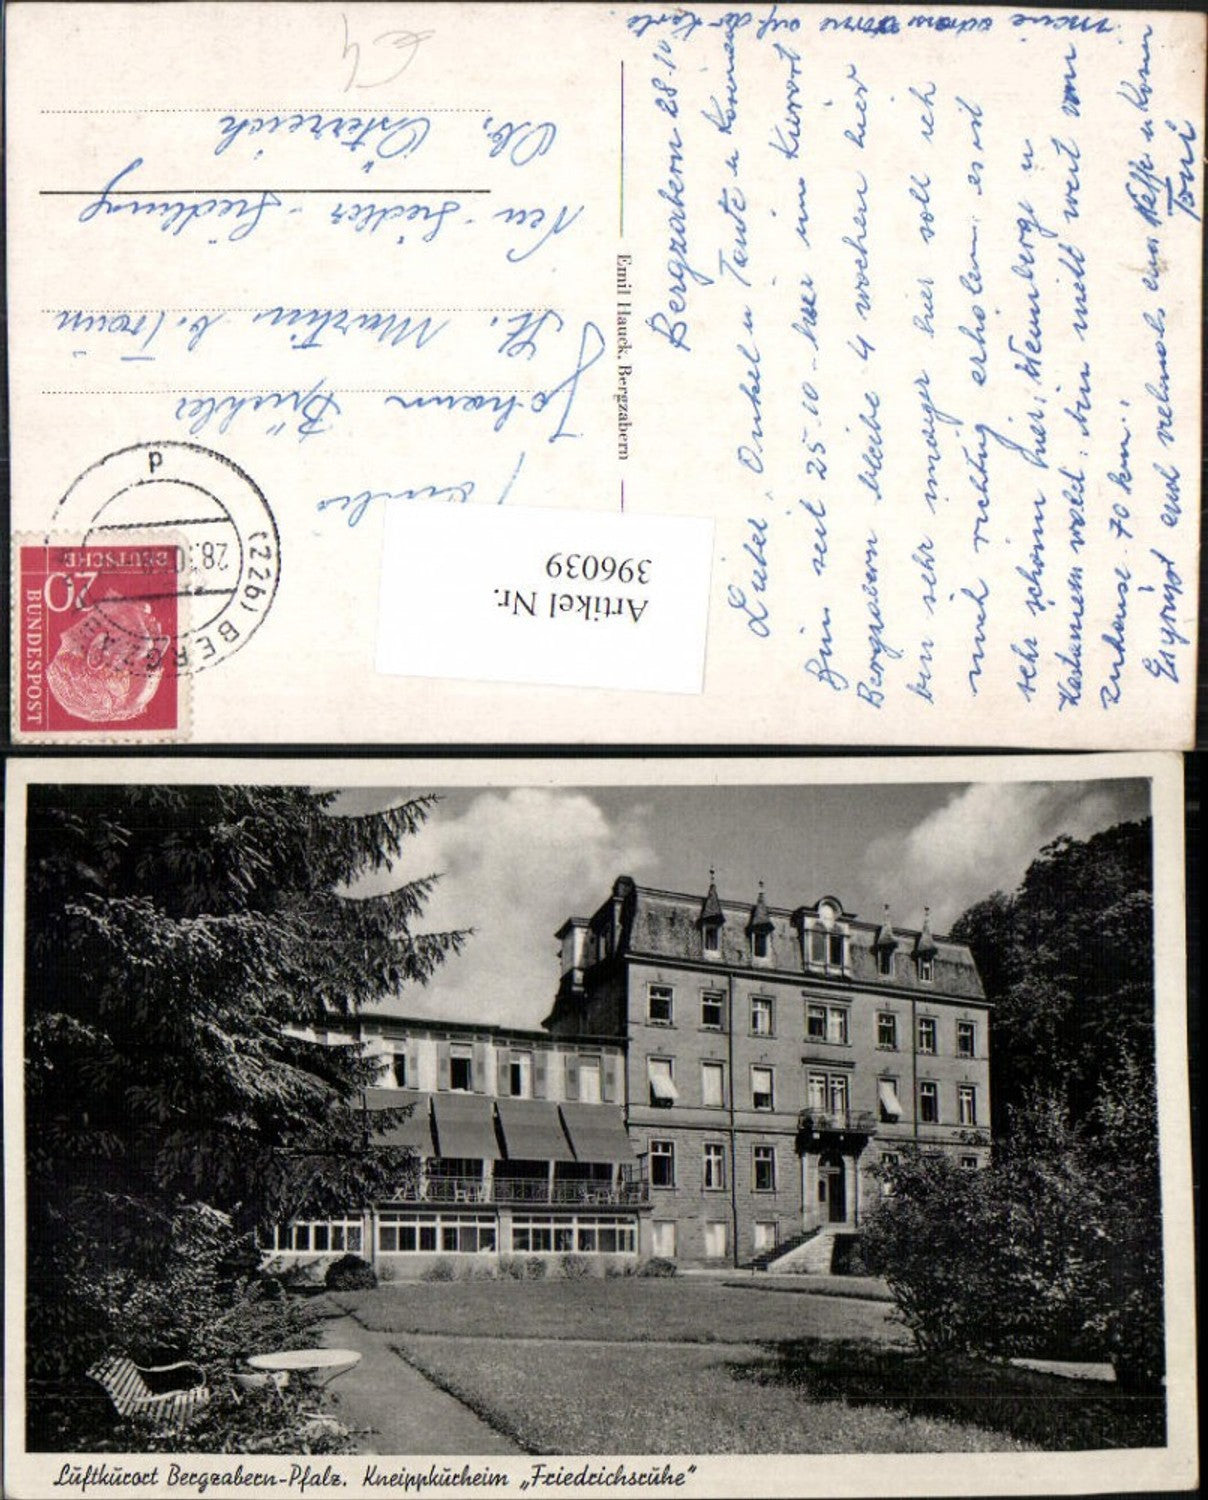 meine adress vorne auf der Karte
Bergzabern 28.10
Lieber Onkel u Tante u Kusinen
Bin seit 25-10- hier im Kurort
Bergzabern bleibe 4 wochen hier
bin sehr mager hier soll ich
mich richtig erholen. es ist
sehr schön hier, Weinberge u
Kastanien wald. bin nicht weit von
zuhause. 70 km.
Es grüßt euch vielmals euer Neffe u Kusin
Toni
Emil Hauck, Bergzabern
Familie
Johann Bichler
St. Martin b. Traun
Neu-Siedler-Siedlung
Ob. Österreich
€4
Artikel Nr.
396039
(22b) BERGZABERN
28.10
d
DEUTSCHE
BUNDESPOST
20
Luftkurort Bergzabern-Pfalz. Kneippkurheim „Friedrichsruhe"